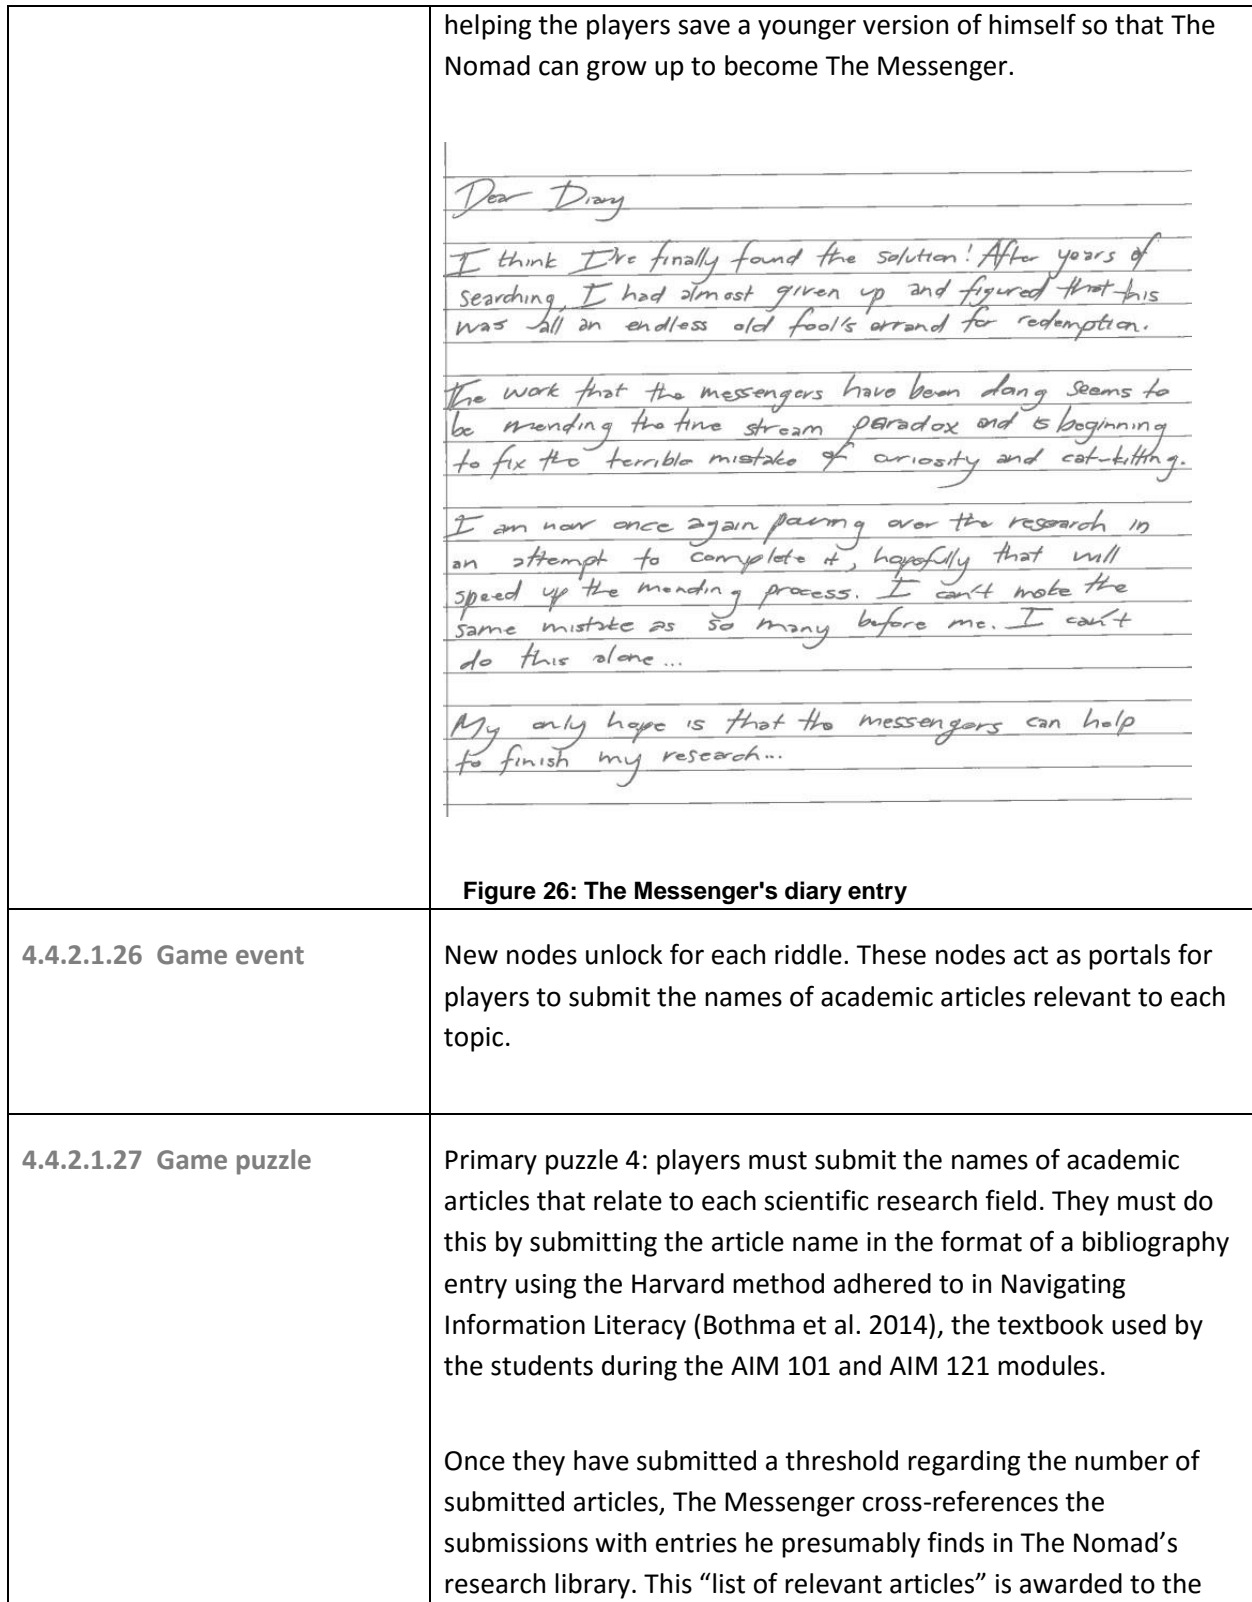 helping the players save a younger version of himself so that The
Nomad can grow up to become The Messenger.
Dear Diary
I think I've finally found the solution! After years of
searching, I had almost given up and figured that this
was all an endless old fool's errand for redemption.
The work that the messengers have been doing seems to
be mending the time stream paradox and is beginning
to fix the terrible mistake of curiosity and cat-killing.
I am now once again pouring over the research in
an attempt to complete it, hopefully that will
speed up the mending process. I can't make the
same mistake as so many before me. I can't
do this alone...
My only hope is that the messengers can help
to finish my research...
Figure 26: The Messenger's diary entry
4.4.2.1.26 Game event
New nodes unlock for each riddle. These nodes act as portals for
players to submit the names of academic articles relevant to each
topic.
4.4.2.1.27 Game puzzle
Primary puzzle 4: players must submit the names of academic
articles that relate to each scientific research field. They must do
this by submitting the article name in the format of a bibliography
entry using the Harvard method adhered to in Navigating
Information Literacy (Bothma et al. 2014), the textbook used by
the students during the AIM 101 and AIM 121 modules.
Once they have submitted a threshold regarding the number of
submitted articles, The Messenger cross-references the
submissions with entries he presumably finds in The Nomad’s
research library. This “list of relevant articles” is awarded to the